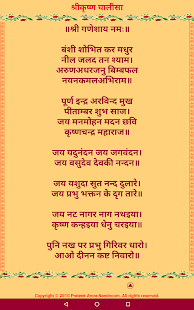 श्रीकृष्ण चालीसा
॥श्री गणेशाय नमः॥
बंशी शोभित कर मधुर
नील जलद तन श्याम।
अरुणअधरजनु बिम्बफल
नयनकमलअभिराम॥
पूर्ण इन्द्र अरविन्द मुख
पीताम्बर शुभ साज।
जय मनमोहन मदन छवि
कृष्णचन्द्र महाराज॥
जय यदुनंदन जय जगवंदन।
जय वसुदेव देवकी नन्दन॥
जय यशुदा सुत नन्द दुलारे।
जय प्रभु भक्तन के दृग तारे॥
जय नट नागर नाग नथइया।
कृष्ण कन्हइया धेनु चरइया॥
पुनि नख पर प्रभु गिरिवर धारो।
आओ दीनन कष्ट निवारो॥
Copyright © 2010 Prateek Anna Nandwani. All rights reserved.